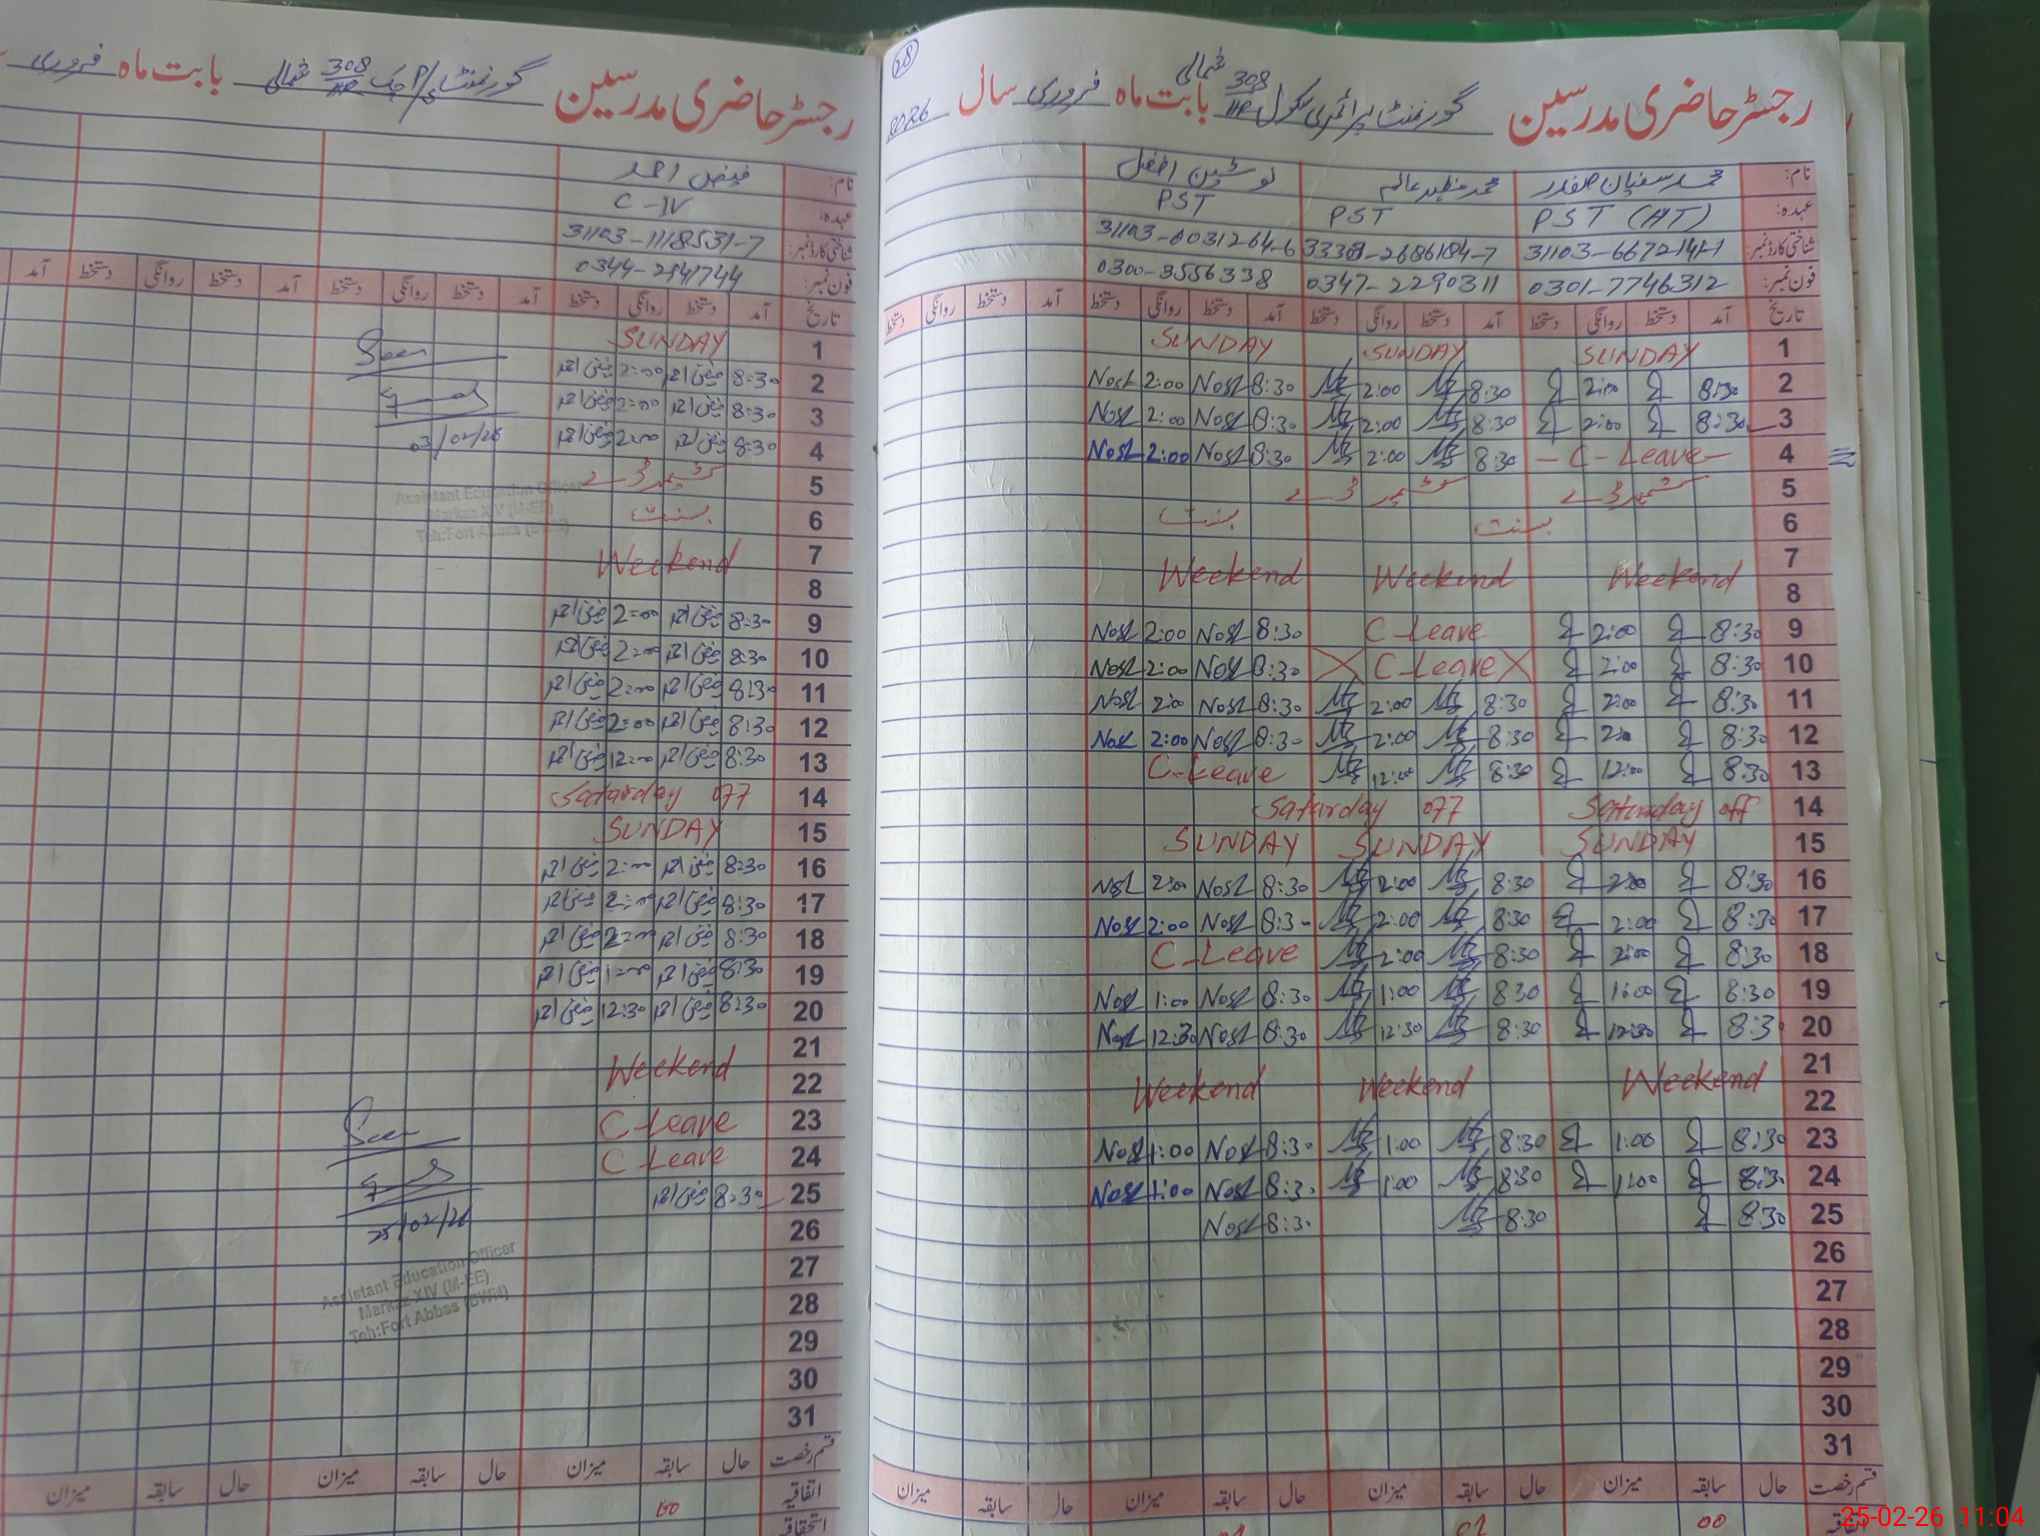 28
رجسٹر حاضری مدرسین گورنمنٹ پرائمری سکول 308/HR شمالی بابت ماہ فروری سال 2026
نام: محمد سفیان صفدر محمد مظہر عالم نوشین افضل
عہدہ: PST (HT) PST PST
شناختی کارڈ نمبر: 31103-6031264-6
فون نمبر: 0301-7746312 0347-2290311 0300-3556338
تاریخ آمد دستخط روانگی دستخط آمد دستخط روانگی دستخط آمد دستخط روانگی دستخط آمد دستخط روانگی دستخط
1 SUNDAY SUNDAY SUNDAY
2 8:30 2:00 8:30 2:00 8:30 Nosh 2:00 Nosh
3 8:30 2:00 8:30 2:00 8:30 Nosh 2:00 Nosh
4 - C - Leave - 8:30 2:00 8:30 Nosh 2:00 Nosh
5 کشمیر ڈے کشمیر ڈے
6 بسنت بسنت
7 Weekend Weekend Weekend
8
9 8:30 2:00 C-Leave 8:30 Nosh 2:00 Nosh
10 8:30 2:00 C-Leave 8:30 Nosh 2:00 Nosh
11 8:30 2:00 8:30 2:00 8:30 Nosh 2:00 Nosh
12 8:30 2:00 8:30 2:00 8:30 Nosh 2:00 Nosh
13 8:30 12:00 8:30 12:00 C-Leave
14 Saturday off Saturday off
15 SUNDAY SUNDAY SUNDAY
16 8:30 2:00 8:30 2:00 8:30 Nosh 2:00 Nosh
17 8:30 2:00 8:30 2:00 8:30 Nosh 2:00 Nosh
18 8:30 2:00 8:30 2:00 C-Leave
19 8:30 1:00 8:30 1:00 8:30 Nosh 1:00 Nosh
20 8:30 12:30 8:30 12:30 8:30 Nosh 12:30 Nosh
21 Weekend Weekend Weekend
22
23 8:30 1:00 8:30 1:00 8:30 Nosh 1:00 Nosh
24 8:30 1:00 8:30 1:00 8:30 Nosh 1:00 Nosh
25 8:30 8:30 8:30 Nosh
26
27
28
29
30
31
قسم رخصت حال سابقہ میزان حال سابقہ میزان حال سابقہ میزان حال سابقہ میزان
00 02
رجسٹر حاضری مدرسین گورنمنٹ P/S چک 308/HR شمالی بابت ماہ فروری
نام: فیض احمد
عہدہ: C-IV
شناختی کارڈ نمبر: 31103-1118531-7
فون نمبر: 0344-2541744
تاریخ آمد دستخط روانگی دستخط آمد دستخط روانگی دستخط آمد دستخط روانگی دستخط آمد
1 SUNDAY Seen
2 8:30 فیض احمد 2:00 فیض احمد
3 8:30 فیض احمد 2:00 فیض احمد
03/02/26
4 8:30 فیض احمد 2:00 فیض احمد
5 کشمیر ڈے
Assistant Education Officer
Markaz XIV (M-EE)
Teh:Fort Abbas (BWN)
6 بسنت
7 Weekend
8
9 8:30 فیض احمد 2:00 فیض احمد
10 8:30 فیض احمد 2:00 فیض احمد
11 8:30 فیض احمد 2:00 فیض احمد
12 8:30 فیض احمد 2:00 فیض احمد
13 8:30 فیض احمد 12:00 فیض احمد
14 Saturday off
15 SUNDAY
16 8:30 فیض احمد 2:00 فیض احمد
17 8:30 فیض احمد 2:00 فیض احمد
18 8:30 فیض احمد 2:00 فیض احمد
19 8:30 فیض احمد 1:00 فیض احمد
20 8:30 فیض احمد 12:30 فیض احمد
21 Weekend
22
23 C-Leave Seen
24 C-Leave
25 8:30 فیض احمد
25/02/26
26
27
Assistant Education Officer
Markaz XIV (M-EE)
Teh:Fort Abbas (BWN)
28
29
30
31
قسم رخصت حال سابقہ میزان حال سابقہ میزان حال سابقہ میزان
اتفاقیہ 00
استحقاقیہ
25-02-26 11:04